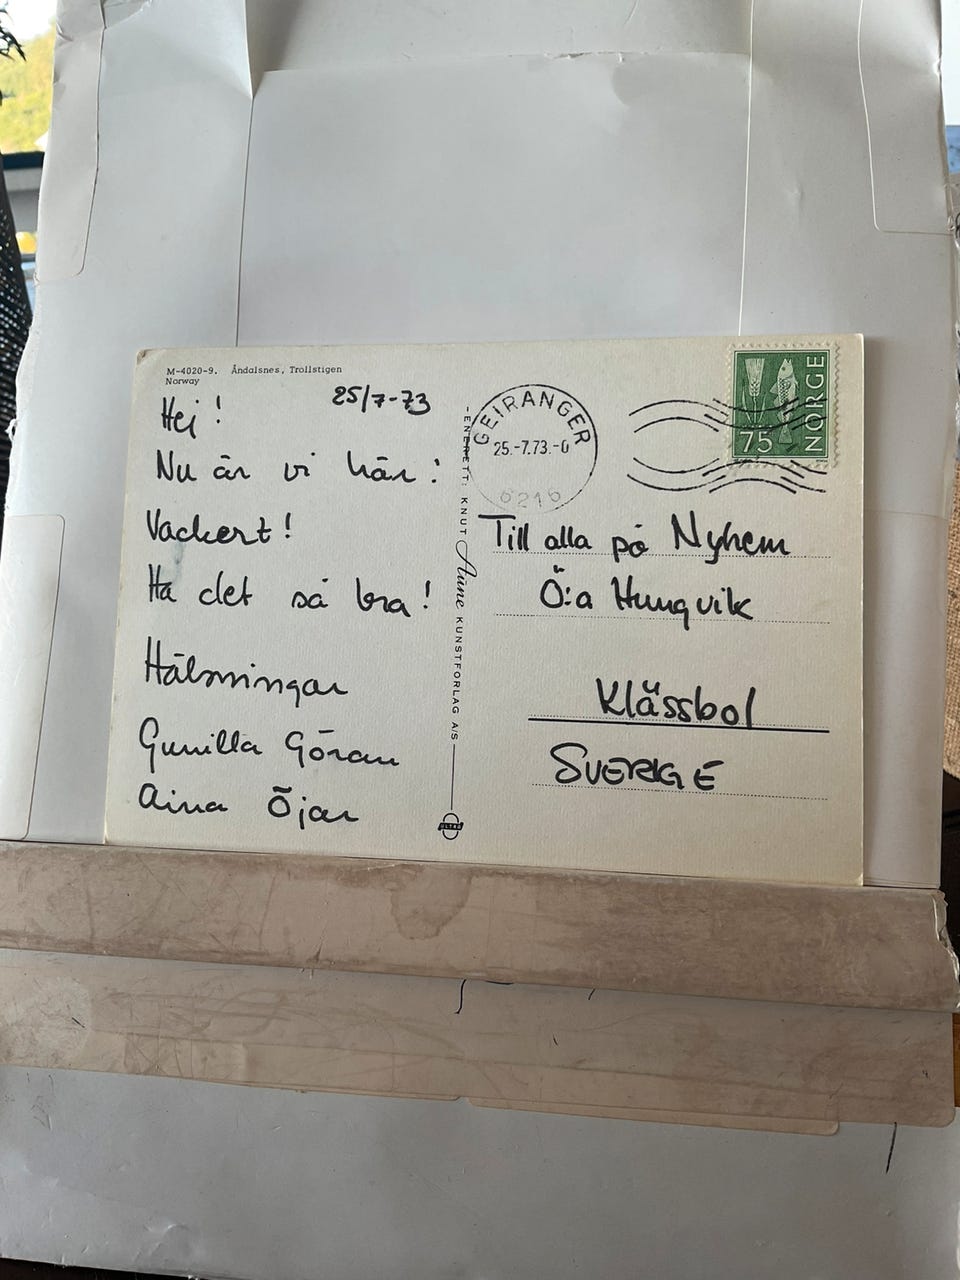 M-4020-9. Åndalsnes, Trollstigen
Norway
25/7-73
Hej!
Nu är vi här:
Vackert!
Ha det så bra!
Hälsningar
Gunilla Göran
Aina Öjar
-ENERETT: KNUT Aune KUNSTFORLAG A/S
GEIRANGER
25.-7.73.-0
6216
75 NORGE
Till alla på Nyhem
Ö:a Hungvik
Klässbol
SVERIGE